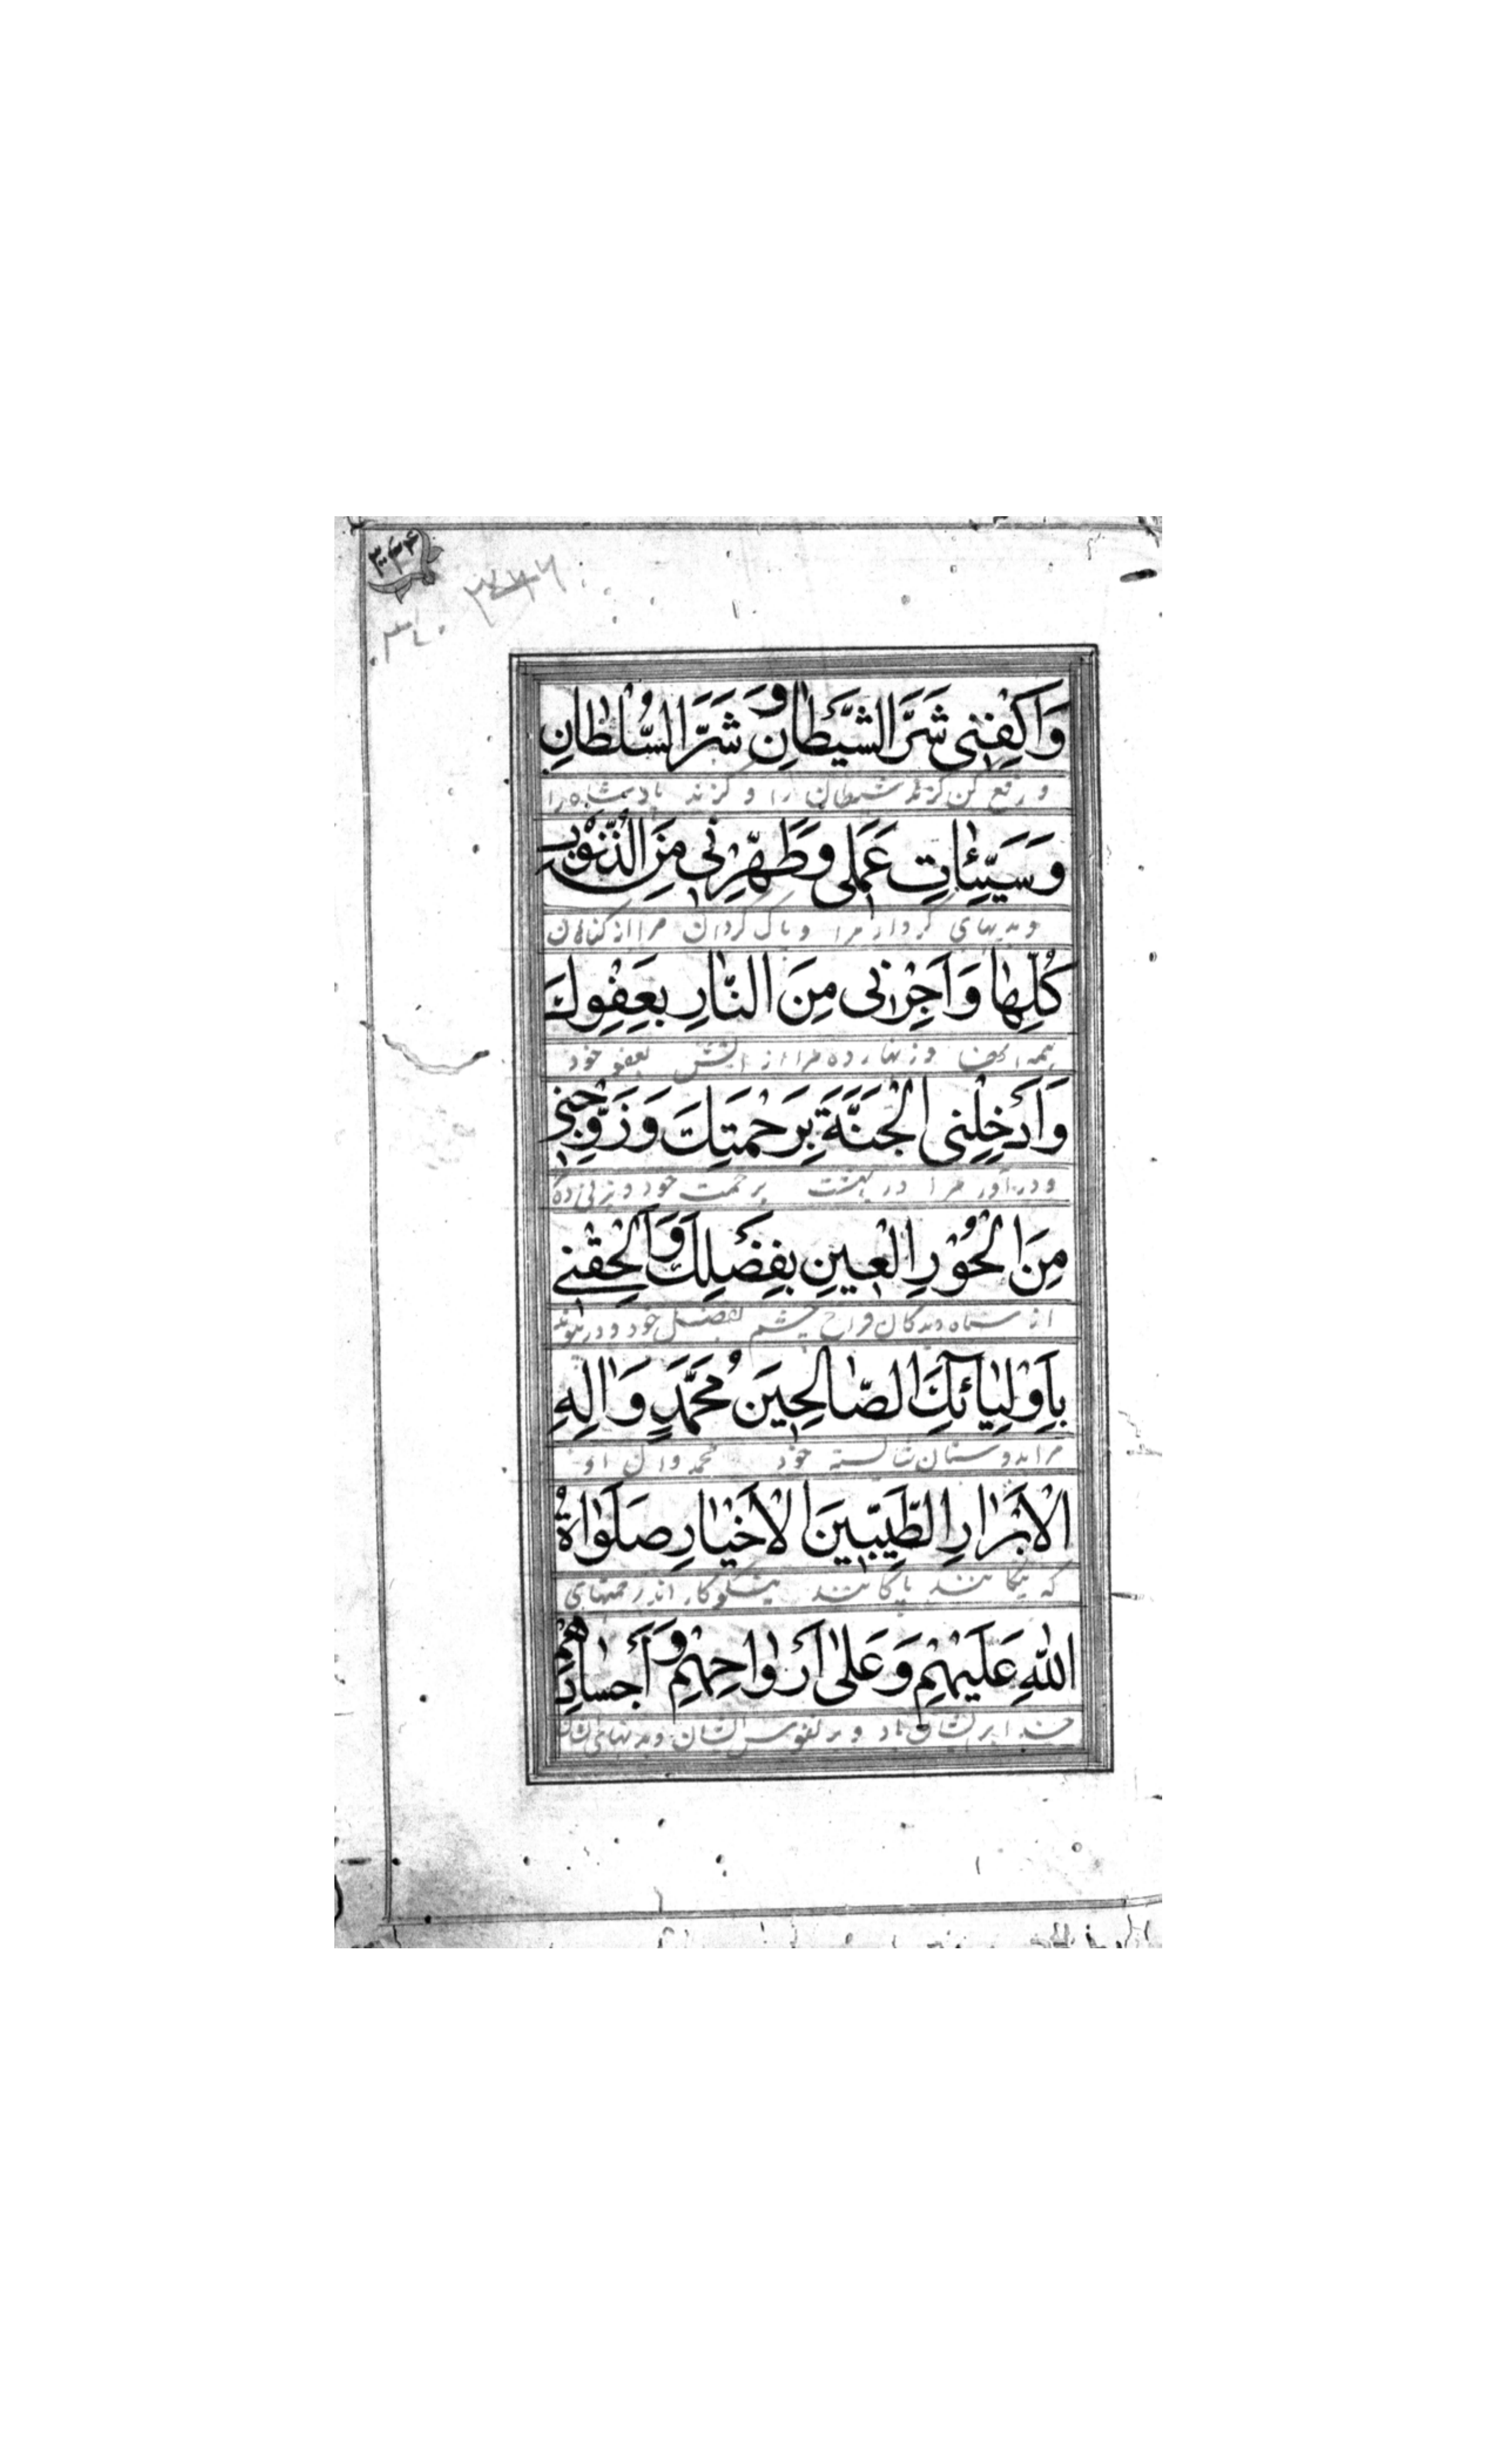 ۳۳۴
وَاَکْفِنِی شَرَّ الشَّیْطَانِ وَ شَرَّ السُّلْطَانِ
و رفع کن گزند شیطان را و گزند پادشاه را
وَ سَیِّئٰاتِ عَمَلِی وَ طَهِّرْنِی مِنَ الذُّنُوْبِ
و بدیهای کردار مرا و پاک گردان مرا از گناهان
کُلِّهٰا وَ اَجِرْنِی مِنَ النّٰارِ بِعَفْوِكَ
همه و زنهار ده مرا از آتش بعفو خود
وَ اَدْخِلْنِی الْجَنَّةَ بِرَحْمَتِكَ وَ زَوِّجْنِی
و در آور مرا در بهشت برحمت خود و بزنی ده
مِنَ الْحُوْرِ الْعِینِ بِفَضْلِكَ وَ اَلْحِقْنِی
از سیاه دیدگان فراخ چشم بفضل خود و
بِاَوْلِیٰائِكَ الصّٰالِحِیْنَ مُحَمَّدٍ وَ اٰلِهِ
مرا بدوستان شایسته خود محمد و آل او
الْاَبْرٰارِ الطَّیِّبِیْنَ الْاَخْیٰارِ صَلَوٰاةُ
که نیکانند پاکانند نیکوکار اند رحمتهای
اللهِ عَلَیْهِمْ وَ عَلٰی اَرْوٰاحِهِمْ وَ اَجْسٰادِهِمْ
خدا بر ایشان باد و بر نفوس ایشان و بدنهای ایشان